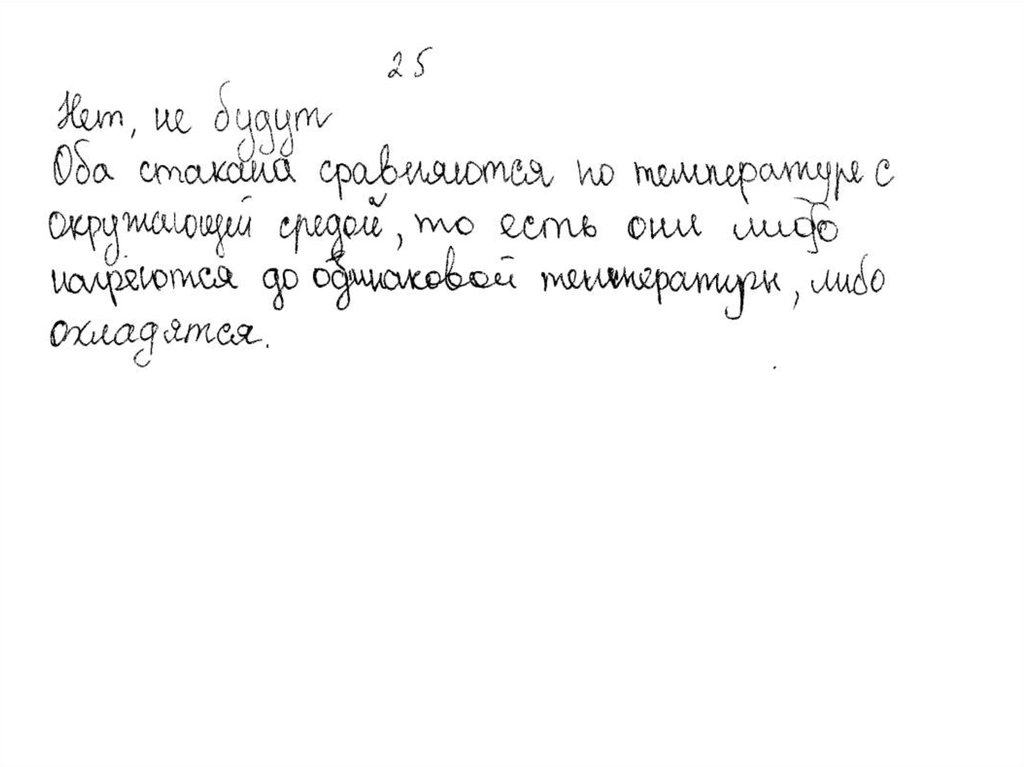 25
Нет, не будут
Оба стакана сравняются по температуре с
окружающей средой, то есть они либо
нагреются до одинаковой температуры, либо
охладятся.